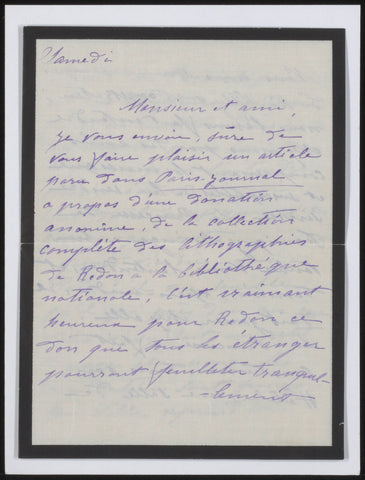 Samedi
Monsieur et ami,
je vous envoie, sûre de
vous faire plaisir un article
paru dans Paris-Journal
a propos d'une donation
anonime, de la collection
complète des lithographies
de Redon à la bibliothéque
nationale, c'est vraiment
heureux pour Redon ce
don que tous les étranger
pourront feuilleter tranquil-
-lement